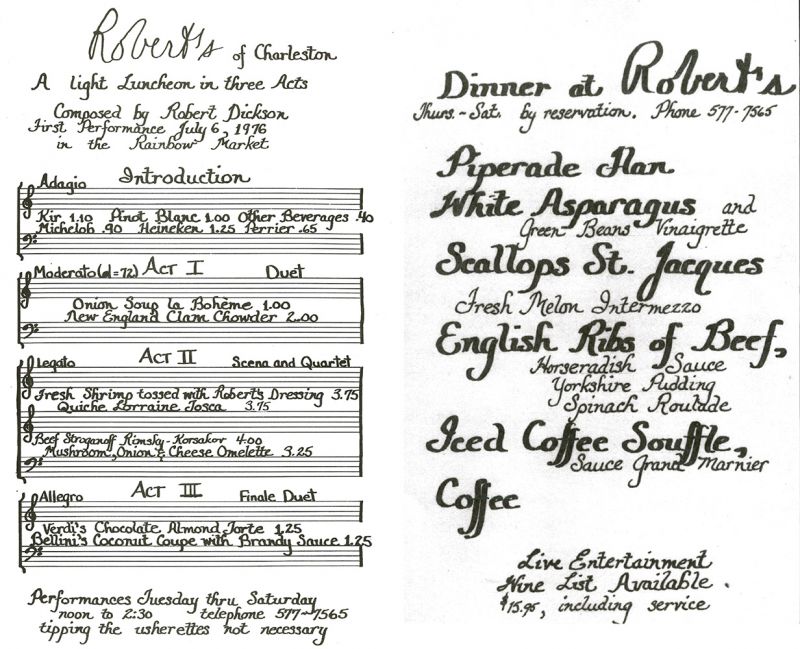 Robert's of Charleston
A Light Luncheon in three Acts
Composed by Robert Dickson
First Performance July 6, 1976
in the Rainbow Market
Adagio Introduction
Kir 1.10 Pinot Blanc 1.00 Other Beverages .40
Michelob .90 Heineken 1.25 Perrier .65
Moderato (♩=72) Act I Duet
Onion Soup la Bohème 1.00
New England Clam Chowder 2.00
Legato Act II Scena and Quartet
Fresh Shrimp tossed with Robert's Dressing 3.75
Quiche Lorraine Tosca 3.75
Beef Stroganoff Rimsky-Korsakov 4.00
Mushroom, Onion & Cheese Omelette 3.25
Allegro Act III Finale Duet
Verdi's Chocolate Almond Torte 1.25
Bellini's Coconut Coupe with Brandy Sauce 1.25
Performances Tuesday thru Saturday
noon to 2:30 telephone 577-7565
tipping the usherettes not necessary
Dinner at Robert's
Thurs.-Sat. by reservation. Phone 577-7565
Piperade Flan
White Asparagus and
Green Beans Vinaigrette
Scallops St. Jacques
Fresh Melon Intermezzo
English Ribs of Beef,
Horseradish Sauce
Yorkshire Pudding
Spinach Roulade
Iced Coffee Souffle,
Sauce Grand Marnier
Coffee
Live Entertainment
Wine List Available.
$15.95, including service